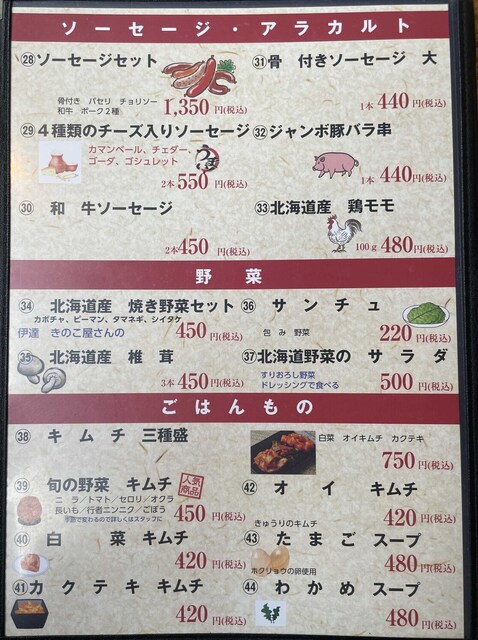 ソーセージ・アラカルト
㉘ソーセージセット
骨付き パセリ チョリソー
和牛 ポーク2種
1,350円(税込)
㉙4種類のチーズ入りソーセージ
カマンベール、チェダー、
ゴーダ、ゴシュレット
うまい
2本550円(税込)
㉚ 和 牛ソーセージ
2本450円(税込)
㉛骨 付きソーセージ 大
1本440円(税込)
㉜ジャンボ豚バラ串
1本440円(税込)
㉝北海道産 鶏モモ
100g 480円(税込)
野 菜
㉞ 北海道産 焼き野菜セット
カボチャ、ピーマン、タマネギ、シイタケ
450円(税込)
伊達 きのこ屋さんの
㉟ 北海道産 椎 茸
3本450円(税込)
㊱ サ ン チ ュ
包 み 野菜
220円(税込)
㊲北海道野菜の サ ラ ダ
すりおろし野菜
ドレッシングで食べる
500円(税込)
ごはんもの
㊳ キ ム チ 三種盛
白菜 オイキムチ カクテキ
750円(税込)
㊴ 旬の野菜 キムチ
人気
商品
ニ ラ/トマト/セロリ/オクラ
長いも/行者ニンニク/ごぼう
季節で変わるので詳しくはスタッフに
450円(税込)
㊵ 白 菜 キムチ
420円(税込)
㊶カ ク テ キ キムチ
420円(税込)
㊷ オ イ キムチ
きゅうりのキムチ
420円(税込)
㊸ た ま ご スープ
ホクリョウの卵使用
480円(税込)
㊹ わ か め スープ
480円(税込)